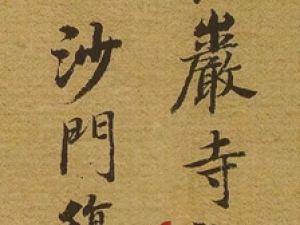 巖寺
沙門